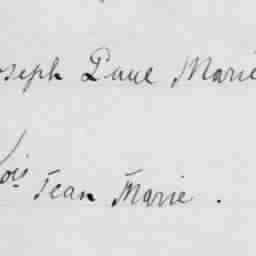 oseph Paul Marie
ois Jean Marie .